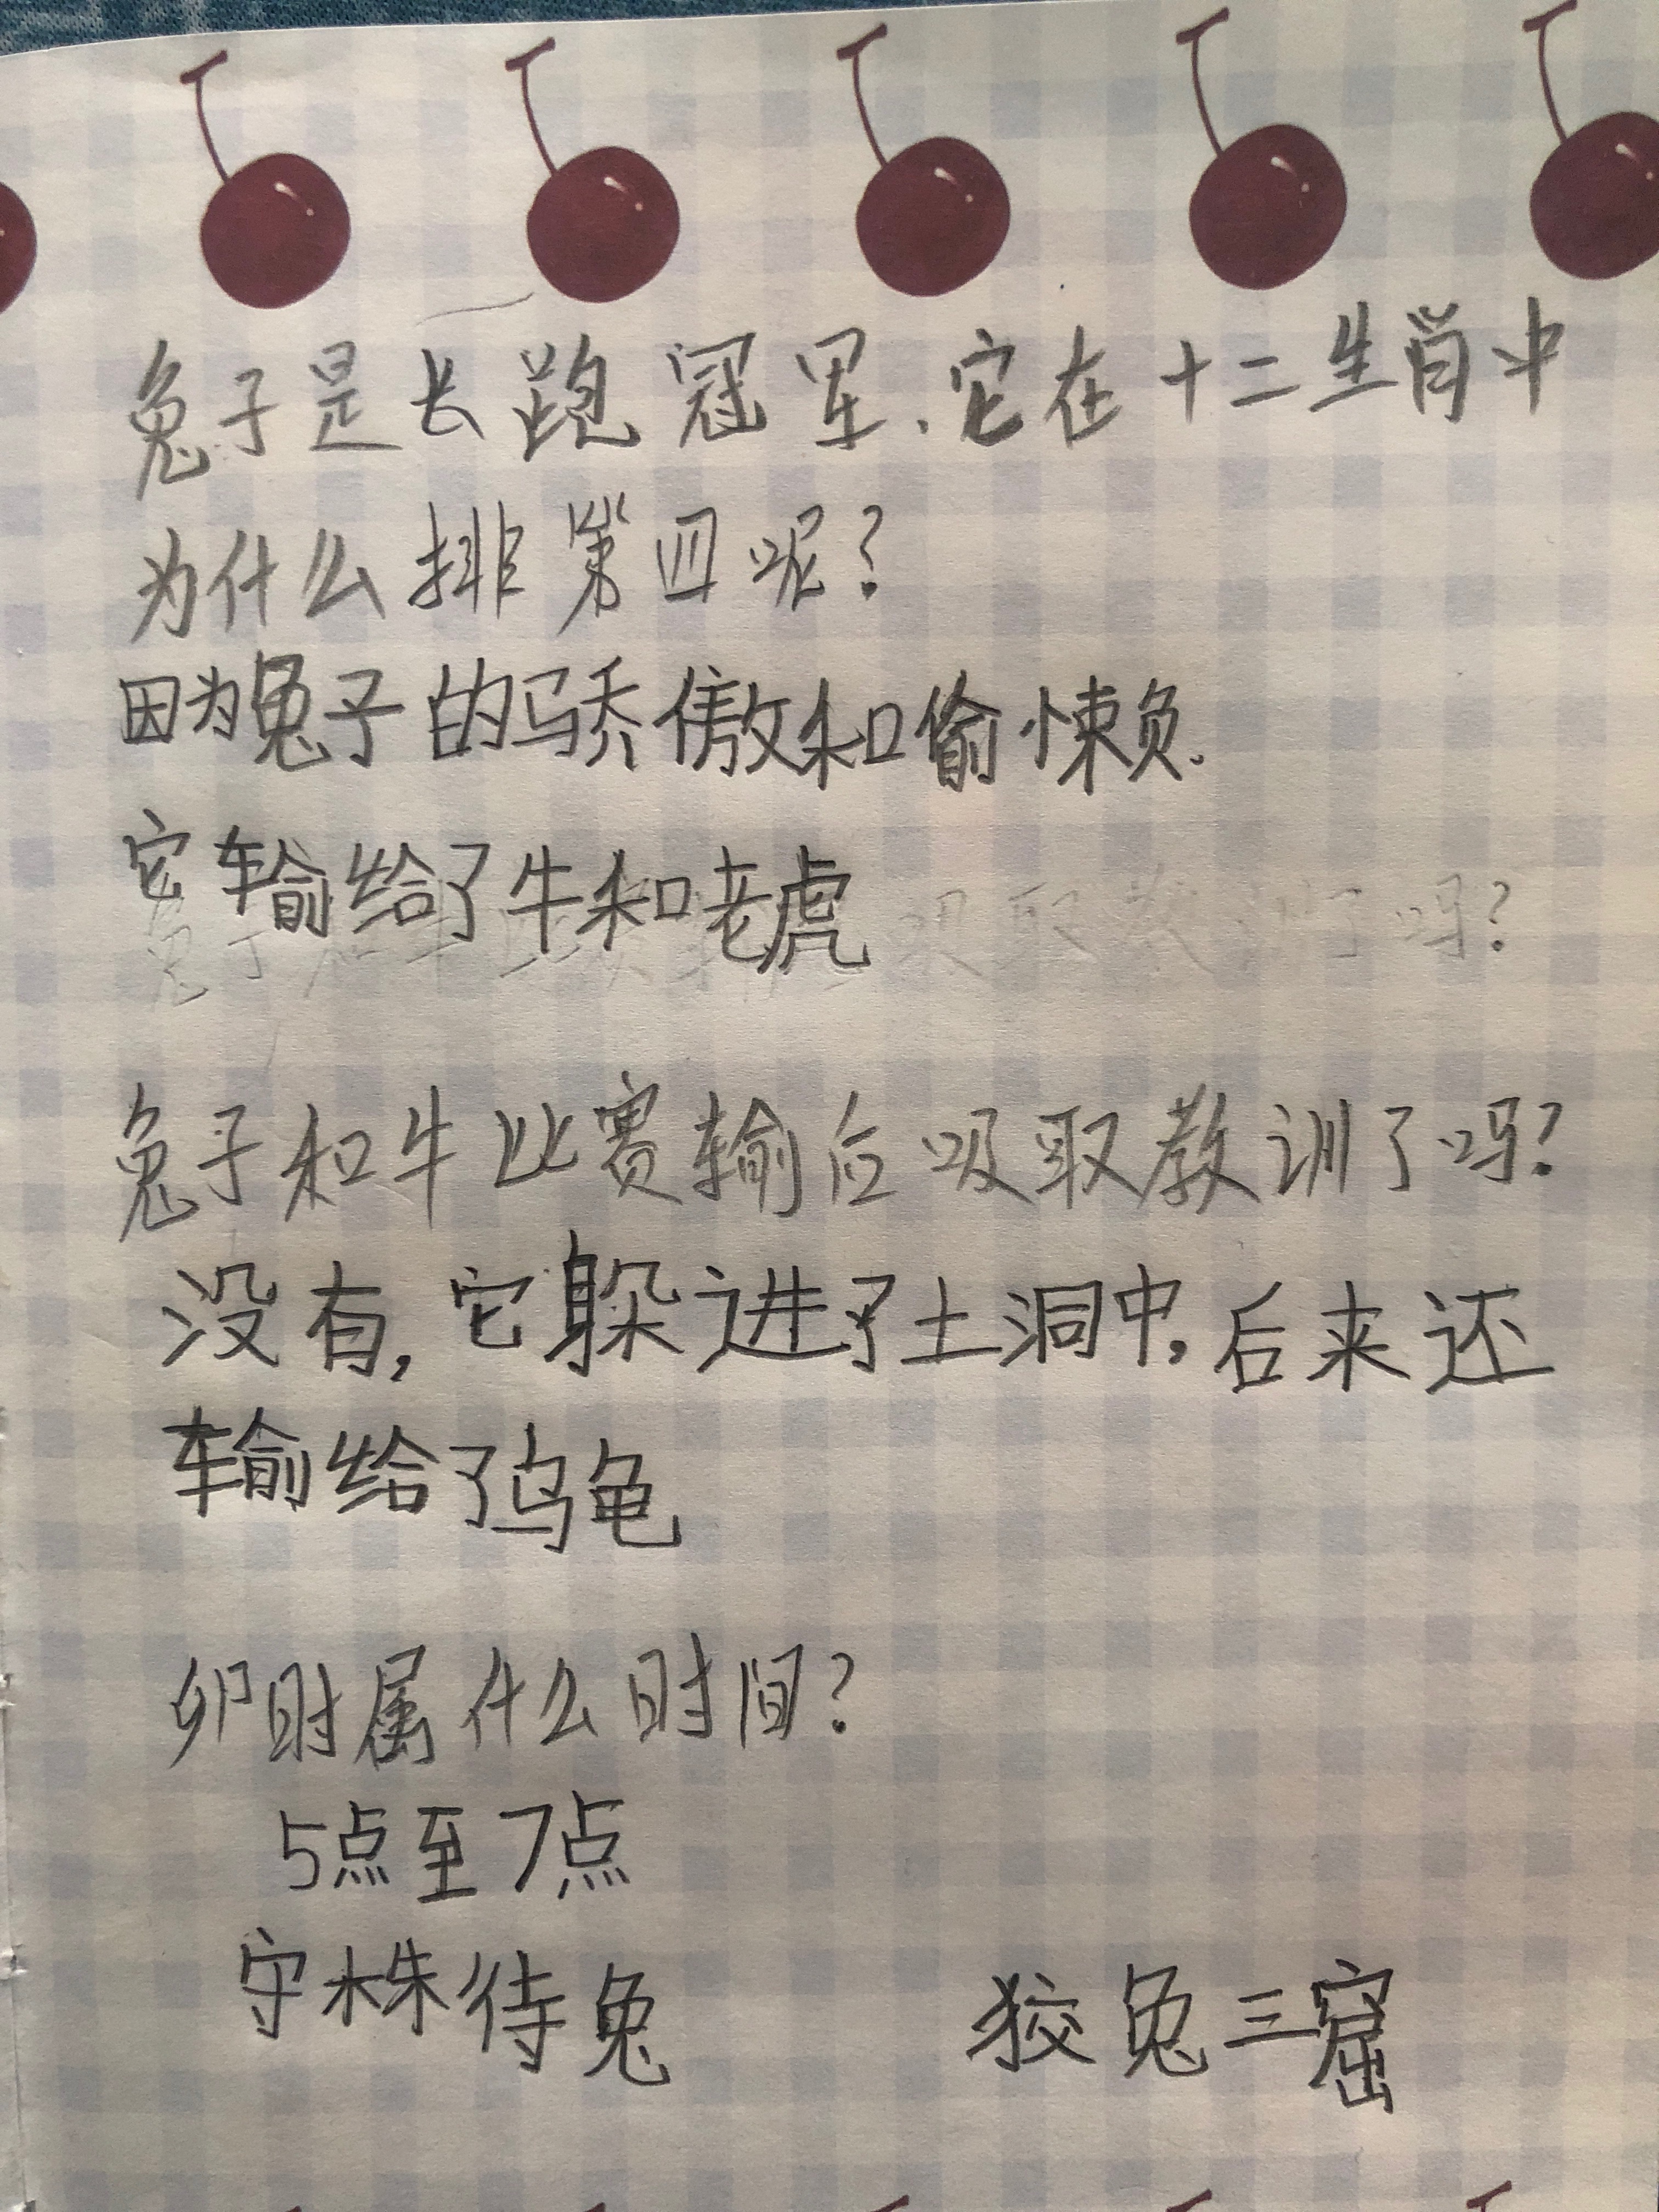 兔子是长跑冠军、它在十二生肖中
为什么排第四呢?
因为兔子的骄傲和偷懒.
它输给了牛和老虎
兔子和牛比赛输后吸取教训了吗?
没有,它躲进了土洞中,后来还
输给了乌龟
卯时属什么时间?
5点至7点
守株待兔
狡兔三窟